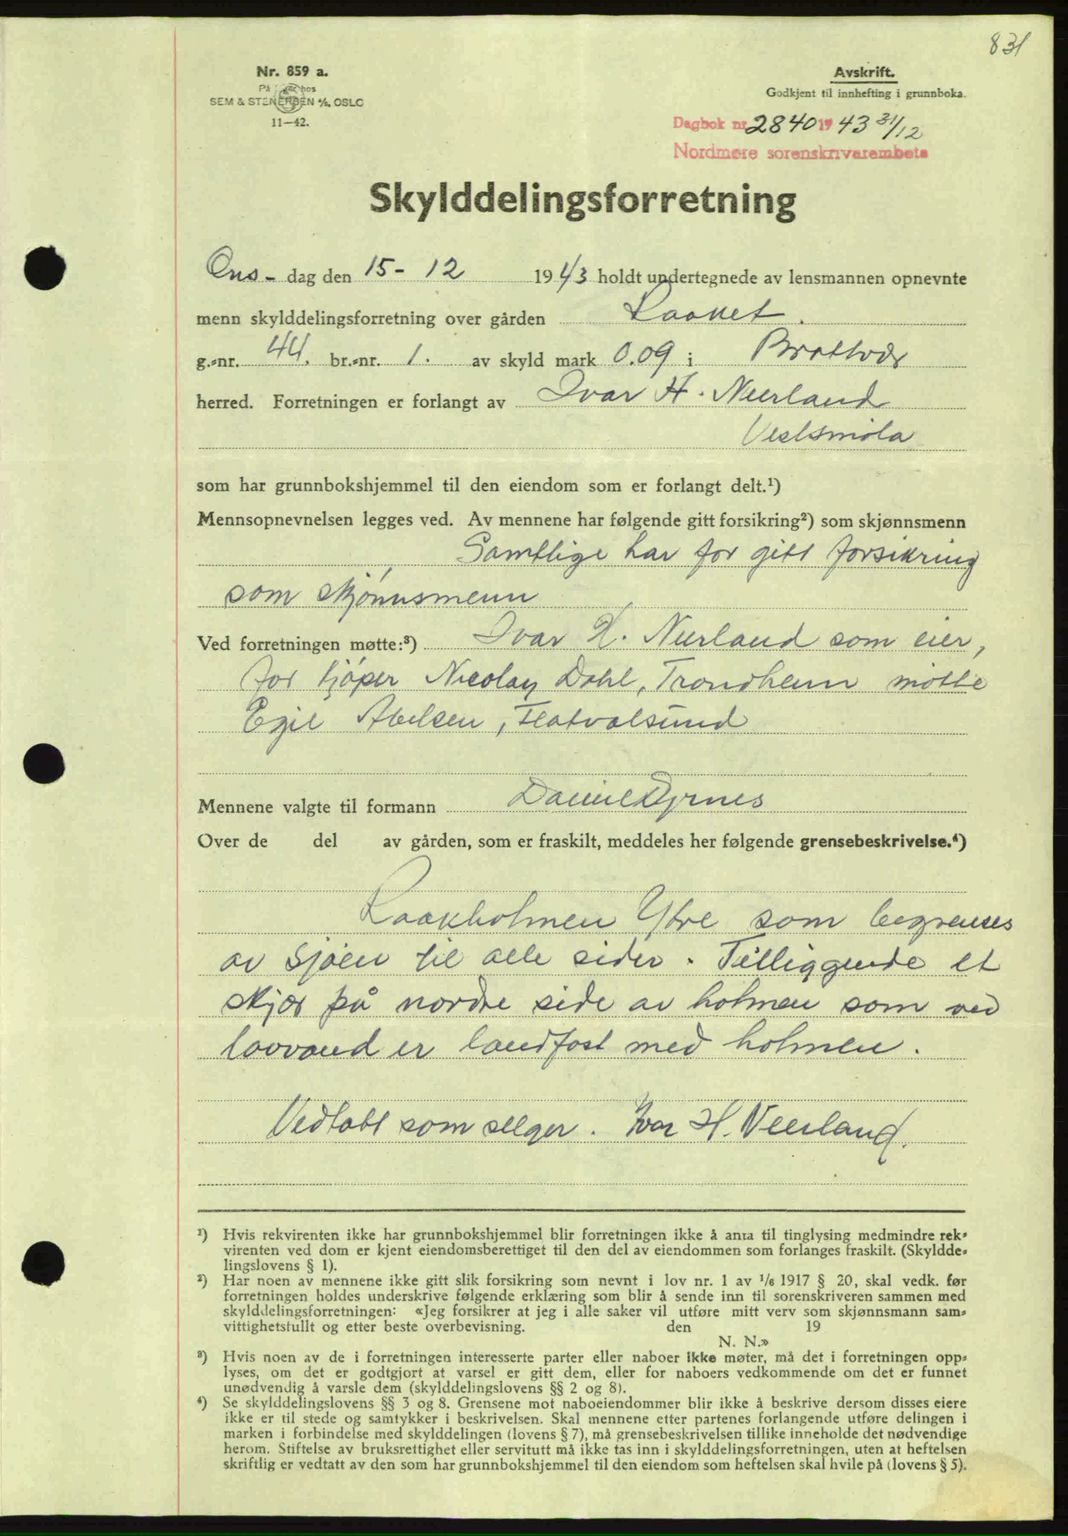 831
Nr. 859 a.
På lager hos
SEM & STENERSEN A/S, OSLO
11—42.
Avskrift.
Godkjent til innhefting i grunnboka.
Dagbok nr. 2840 1943 31/12
Nordmøre sorenskriverembete
Skylddelingsforretning
Ons- dag den 15- 12 1943 holdt undertegnede av lensmannen opnevnte
menn skylddelingsforretning over gården Raaket.
g.-nr. 44. br.-nr. 1. av skyld mark 0.09 i Brattvær
herred. Forretningen er forlangt av Ivar H. Neerland
Vestsmøla
som har grunnbokshjemmel til den eiendom som er forlangt delt.¹)
Mennsopnevnelsen legges ved. Av mennene har følgende gitt forsikring²) som skjønnsmenn
Samtlige har før gitt forsikring
som skjønnsmenn
Ved forretningen møtte:³) Ivar H. Neerland som eier,
for kjøper Nicolay Dahl, Trondheim møtte
Egil Abelsen,
Mennene valgte til formann Daniel Dyrnes
Over de del av gården, som er fraskilt, meddeles her følgende grensebeskrivelse.⁴)
Raakholmen Ytre som begrenses
av sjøen til alle sider. Tilliggende et
skjær på nordre side av holmen som ved
lavvand er landfast med holmen.
Vedtatt som selger. Ivar H. Neerland.
¹) Hvis rekvirenten ikke har grunnbokshjemmel blir forretningen ikke å anta til tinglysing medmindre rek-
virenten ved dom er kjent eiendomsberettiget til den del av eiendommen som forlanges fraskilt. (Skyldde-
lingslovens § 1).
²) Har noen av mennene ikke gitt slik forsikring som nevnt i lov nr. 1 av 1/6 1917 § 20, skal vedk. før
forretningen holdes underskrive følgende erklæring som blir å sende inn til sorenskriveren sammen med
skylddelingsforretningen: «Jeg forsikrer at jeg i alle saker vil utføre mitt verv som skjønnsmann sam-
vittighetsfullt og etter beste overbevisning. den 19
N. N.»
³) Hvis noen av de i forretningen interesserte parter eller naboer ikke møter, må det i forretningen opp-
lyses, om det er godtgjort at varsel er gitt dem, eller for naboers vedkommende om det er funnet
unødvendig å varsle dem (skylddelingslovens §§ 2 og 8).
⁴) Se skylddelingslovens §§ 3 og 8. Grensene mot naboeiendommer blir ikke å beskrive dersom disses eiere
ikke er til stede og samtykker i beskrivelsen. Skal mennene etter partenes forlangende utføre delingen i
marken i forbindelse med skylddelingen (lovens § 7), må grensebeskrivelsen tillike inneholde det nødvendige
herom. Stiftelse av bruksrettighet eller servitutt må ikke tas inn i skylddelingsforretningen, uten at heftelsen
skriftlig er vedtatt av den som har grunnbokshjemmel til den eiendom som heftelsen skal hvile på (lovens § 5).